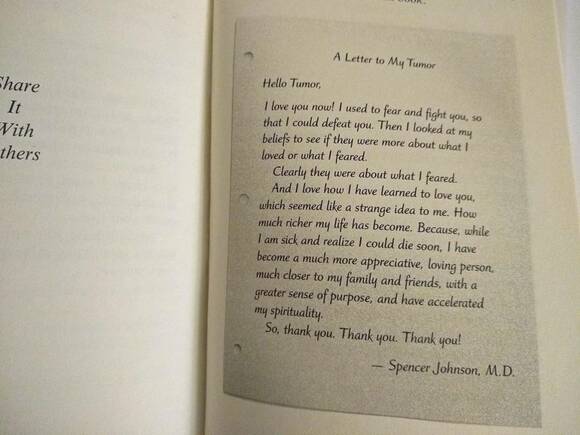 Share
It
With
thers
A Letter to My Tumor
Hello Tumor,
I love you now! I used to fear and fight you, so
that I could defeat you. Then I looked at my
beliefs to see if they were more about what I
loved or what I feared.
Clearly they were about what I feared.
And I love how I have learned to love you,
which seemed like a strange idea to me. How
much richer my life has become. Because, while
I am sick and realize I could die soon, I have
become a much more appreciative, loving person,
much closer to my family and friends, with a
greater sense of purpose, and have accelerated
my spirituality.
So, thank you. Thank you. Thank you!
— Spencer Johnson, M.D.